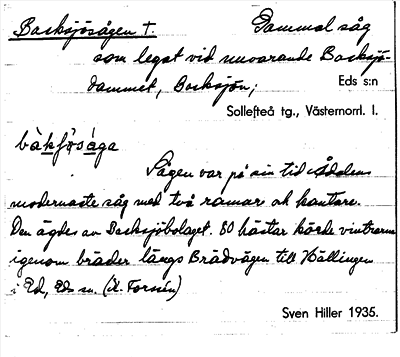 Backsjösågen †. Gammal såg
som legat vid nuvarande Backsjö-
dammet, Backsjön; Eds s:n
Sollefteå tg., Västernorrl. l.
Sågen var på sin tid Ådalens
modernaste såg med två ramar och kantare.
Den ägdes av Backsjöbolaget. 80 hästar körde vintrarna
igenom bräder längs Brädvägen till Hällingen
i Ed, Eds sn. (A. Forsén)
Sven Hiller 1935.